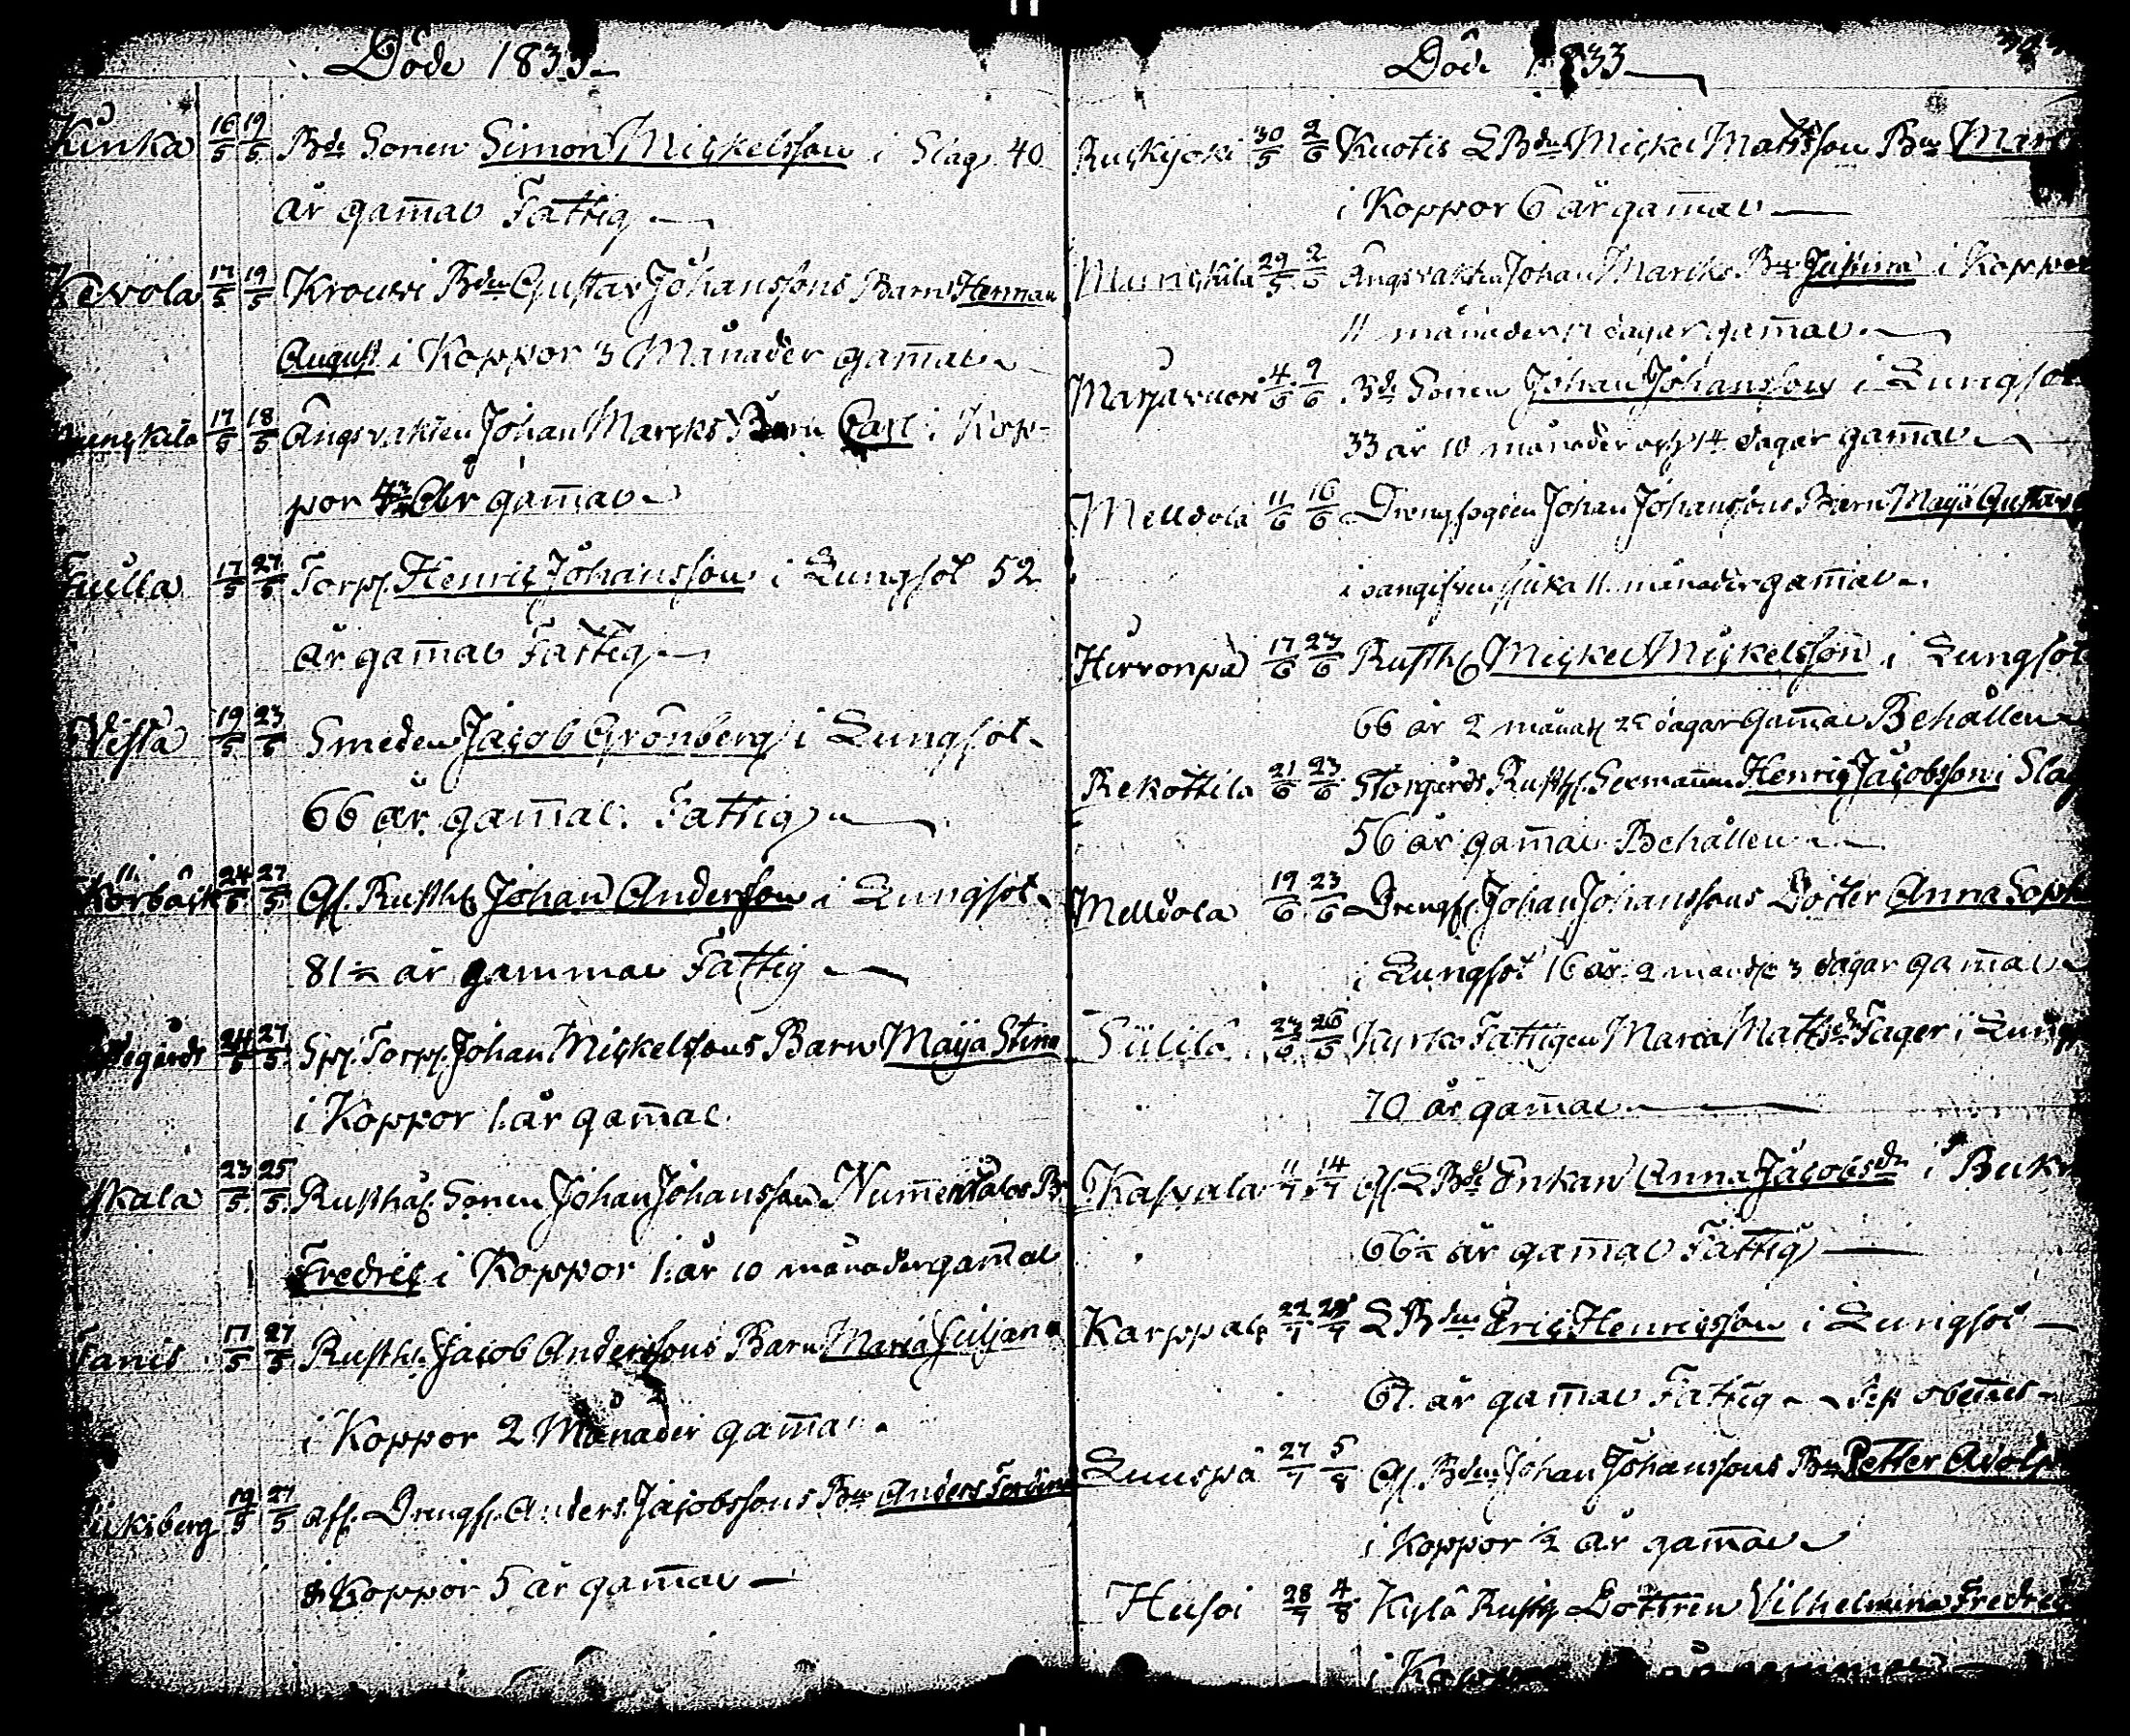 Döde 1833
Kinka 16/5 19/5 Bde Sonen Simon Mickelsson i Slag 40
år gam̄al Fattig
Kewola 17/5 19/5 Krouwi Bdns Gustav Johanssons Barn Herman
August i Koppor 3 Månader gam̄al
17/5 18/5 Ängsvakten Johan Marcks Barn Carl i Kop-
por År gam̄al
17/5 27/5 Torp. Henric Johansson i Lungsot 52
år gam̄al Fattig
Vista 19/5 23/5 Smeden Jacob Grönberg i Lungsot
66 år gam̄al. Fattig
Körbäck 24/5 27/5 Af. Rusth. Johan Andersson i Lungsot
81½ år gammal Fattig
24/5 27/5 Spf. Torp. Johan Mickelssons Barn Maija Stina
i Koppor 1. år gam̄al.
23/5 25/5 Rusthål. Sonen Johan Johansson
Fredric i Koppor 1. år 10 månader gam̄al
Tanis 17/5 27/5 Rusth. Jacob Anderssons Barn Maria Juljana
i Koppor 2 Månader gam̄al
19/5 27/5 Af. Drengs. Anders Jacobssons Bn Anders
i Koppor 5 år gam̄al
Döde 1833
Ruskijoki 30/5 2/6 Kuotis L Bdns Mickel Mattsson Bn
i Koppor 6 år gam̄al
Munckila 29/5 2/6 Ängsvakten Johan Marcks Bn Justina i Koppor
11 månader 17 dagar gam̄al
4/6 9/6 Bde Sonen Johan Johansson i Lungsot
33 år 10 månader och 14 dagar gam̄al
Melldola 11/6 16/6 Drengfogden Johan Johanssons Barn Maija Gustava
i oangifven sjuka 11. månader gam̄al
Hirvonpä 17/6 23/6 Rusth. Mickel Mickelsson i Lungsot
66 år 2 månad dagar gam̄al Behållen
Rekottila 21/6 23/6 Storgårds Rusth. Sexmannen Henric Jacobsson i Slag
56 år gam̄al Behållen
Melldola 19/6 23/6 Drengf. Johan Johanssons Dotter Anna
i Lungsot 16 år 2 månad. 3 dagar gam̄al
Siilila 23/6 26/6 Kyrko Fattigen Maria Mattsdr Fager i
70 år gam̄al
Kaswala 11/7 14/7 Af. L Bde Enkan Anna Jacobsdr i
66½ år gam̄al Fattig
22/7 28/7 L Bdn Eric Henricsson i Lungsot
67. år gam̄al Fattig
Luuspä 27/7 5/8 Af. Bdns Johan Johanssons Bn Petter
i Koppor ½ år gam̄al
Husoi 28/7 4/8 Kylä Rusth. Dottren Vilhelmina